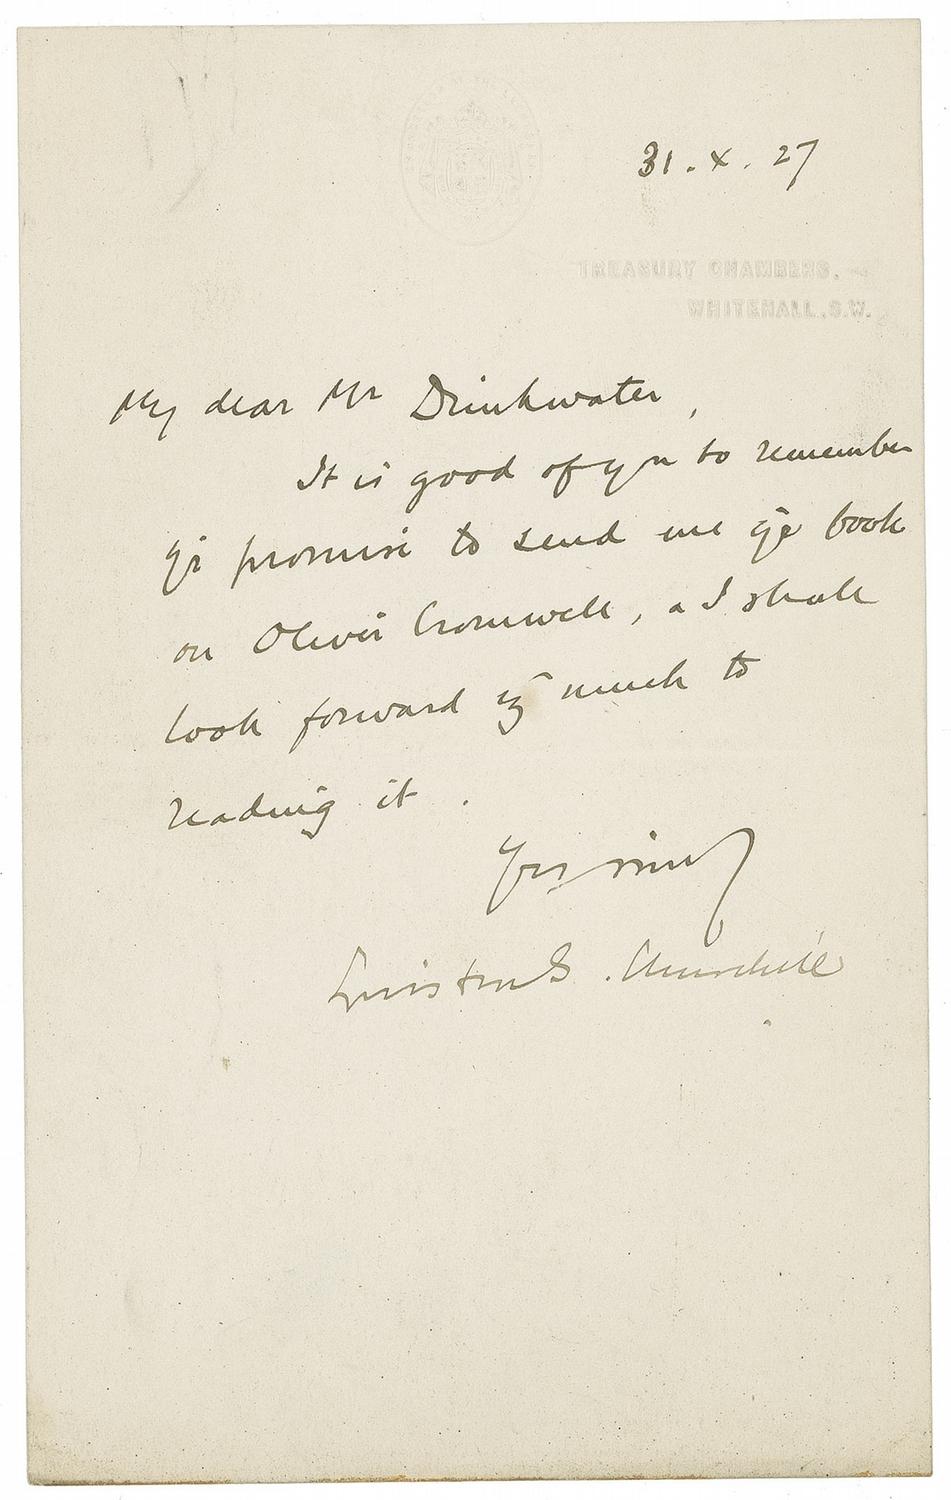 31. X. 27
TREASURY CHAMBERS,
WHITEHALL, S.W.
My dear Mr Drinkwater,
It is good of you to remember
yr promise to send me ye book
on Oliver Cromwell, & I shall
look forward vy much to
reading it.
Yrs sincly
Winston S. Churchill